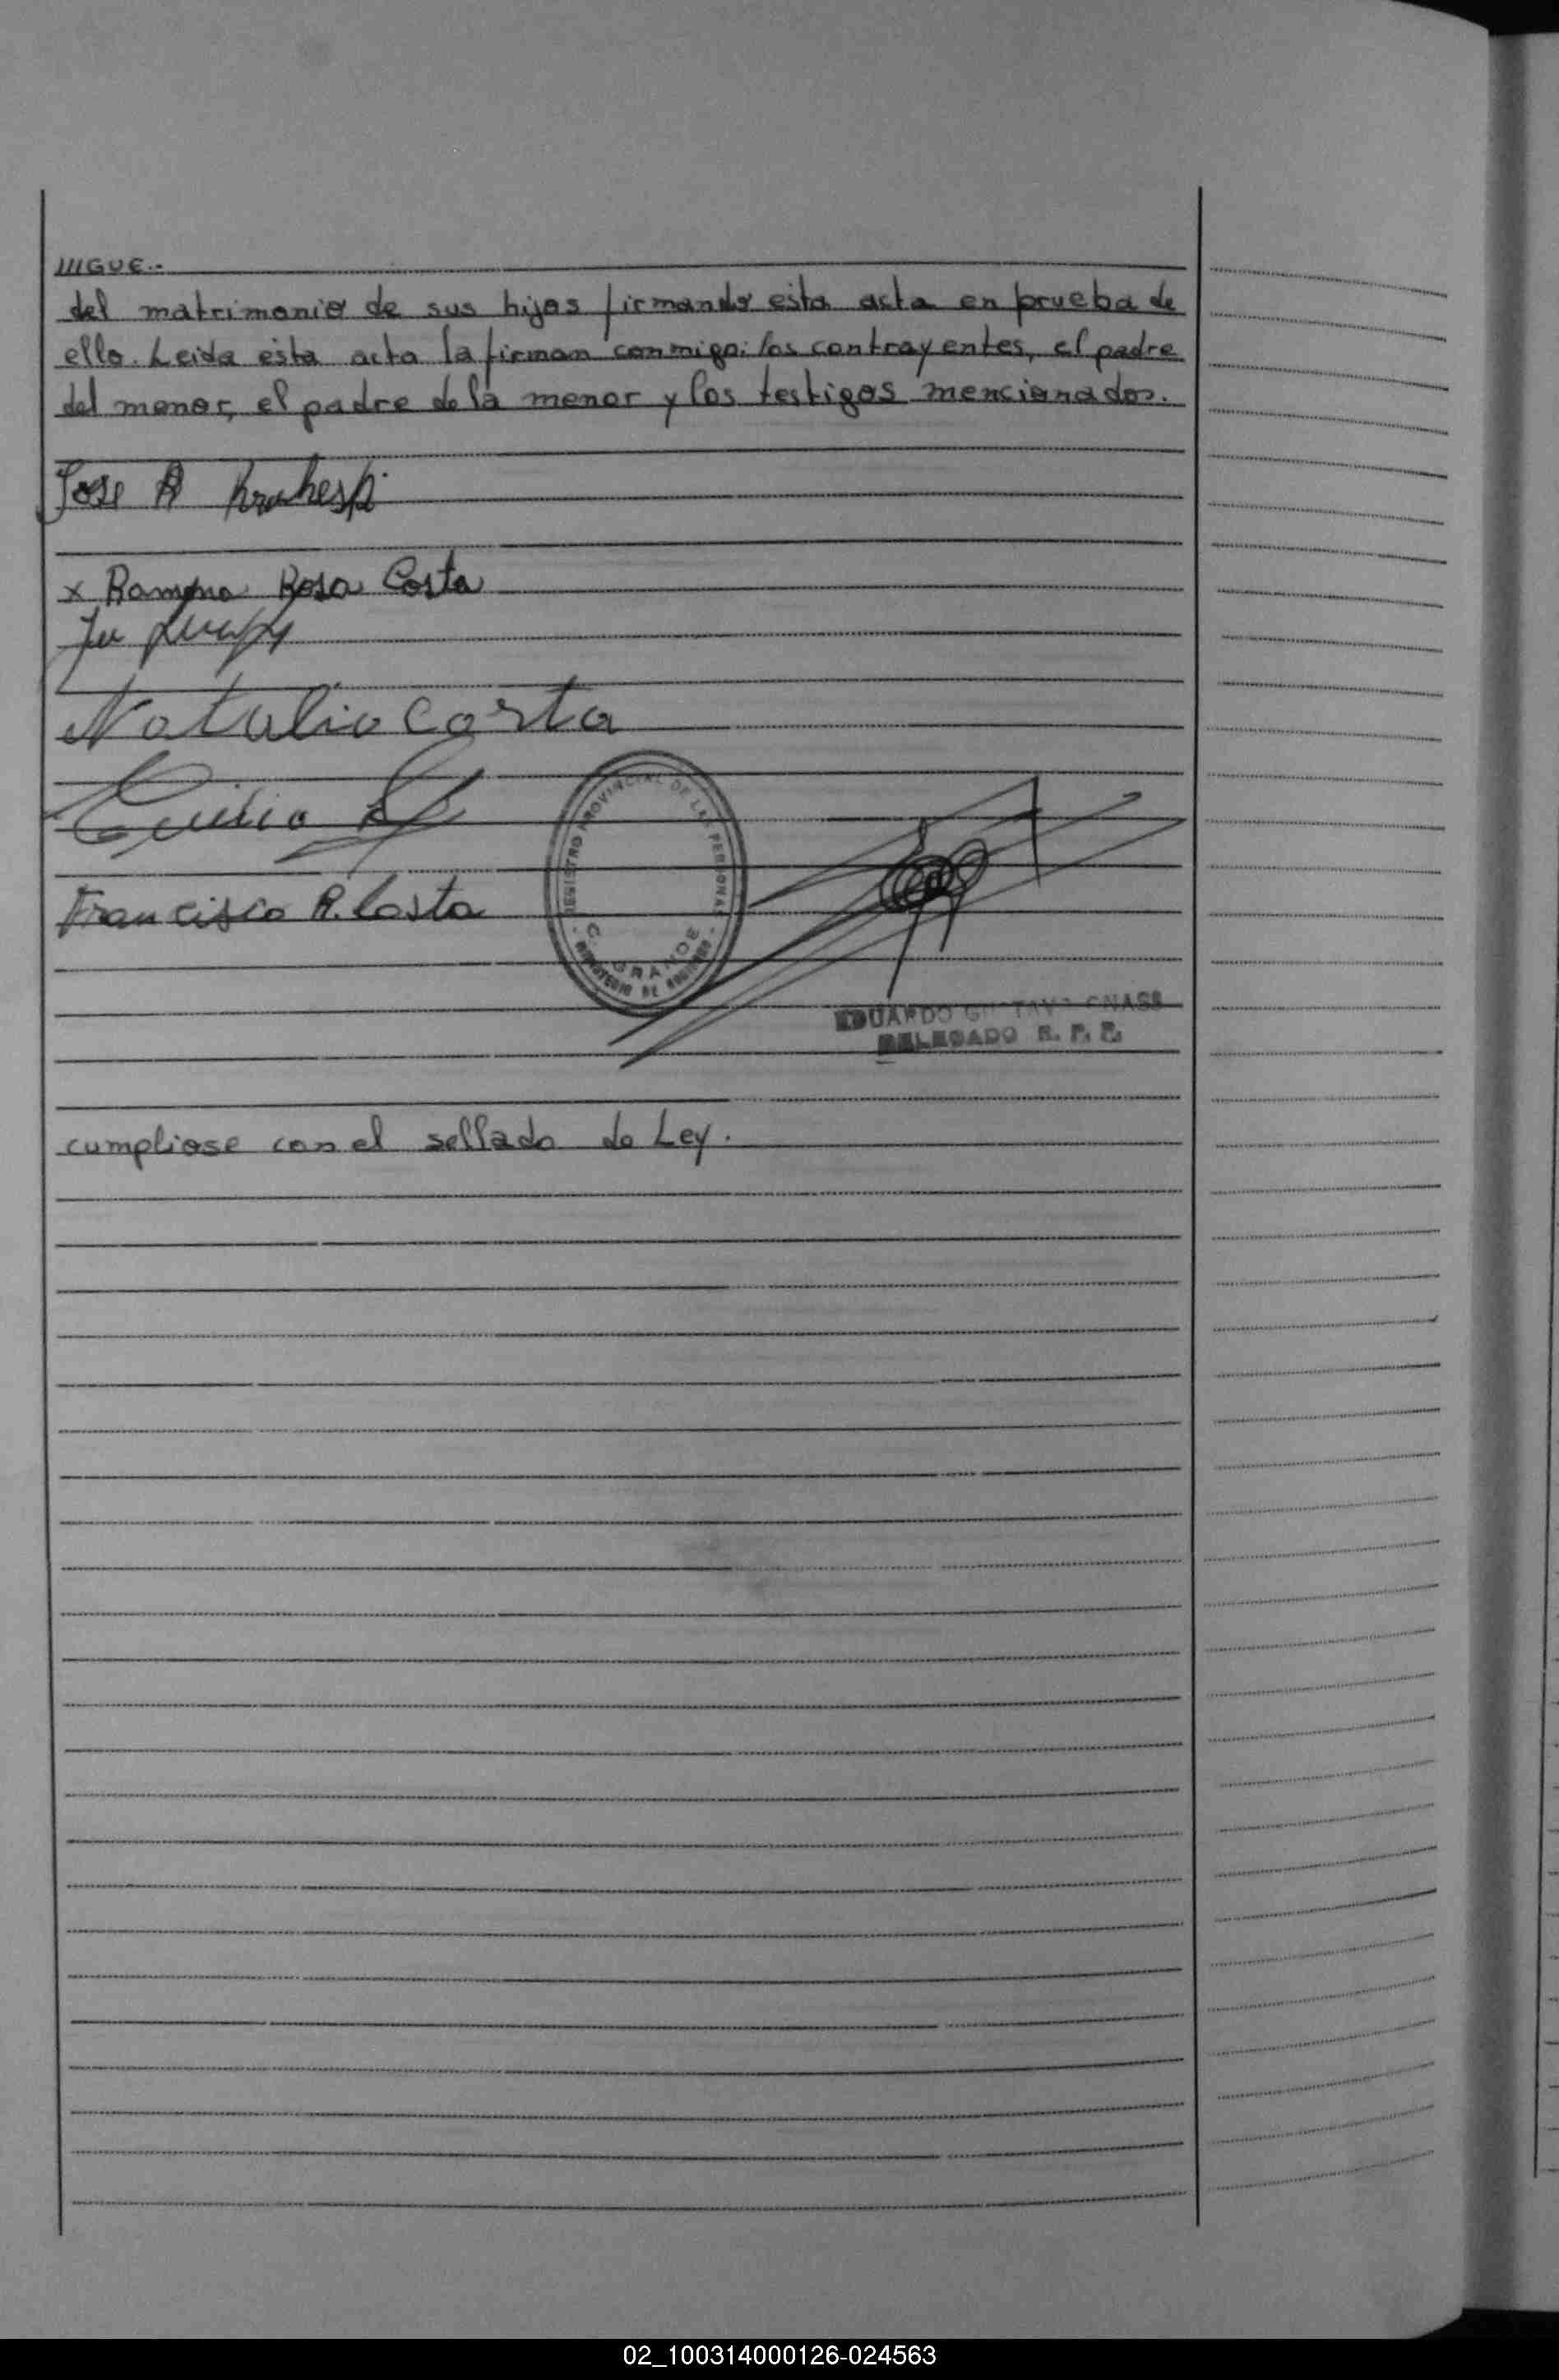 ///GUE.-
del matrimonio de sus hijos firmando esta acta en prueba de
ello. Leida esta acta la firman conmigo: los contrayentes, el padre
del menor, el padre de la menor y los testigos mencionados.
Jose A
x Ramona Rosa Costa
Natalio Costa
Francisco R. Costa
REGISTRO PROVINCIAL DE LAS PERSONAS
C. GRANDE
MINISTERIO DE GOBIERNO
EDUARDO
DELEGADO R. P. P.
cumpliose con el sellado de Ley.
02_100314000126-024563